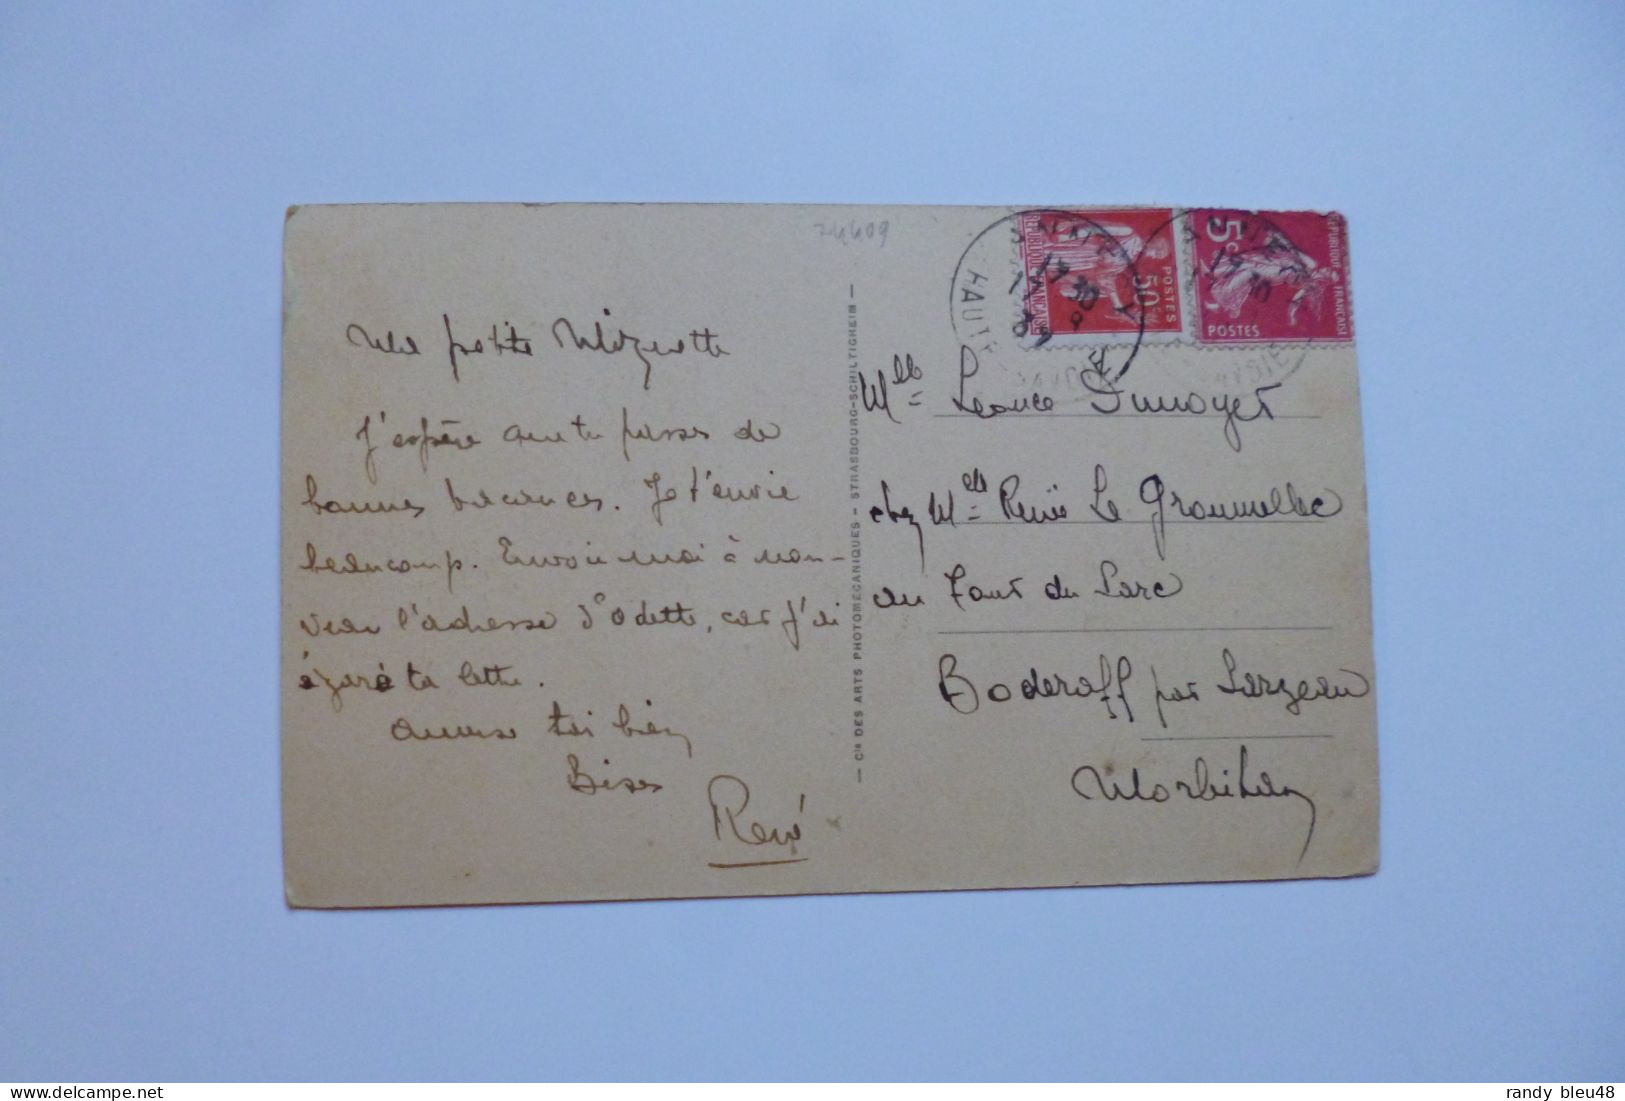 74409
Ma petite Mizette
J'espère que tu passes de
bonnes vacances. Je t'envie
beaucoup. Envoie moi à nou-
veau l'adresse d'Odette, car j'ai
égaré ta lettre.
Amuse toi bien
Bises
René
— Cie DES ARTS PHOTOMÉCANIQUES - STRASBOURG-SCHILTIGHEIM —
RÉPUBLIQUE FRANÇAISE
POSTES
50c
5c
POSTES
RÉPUBLIQUE FRANÇAISE
HAUTE SAVOIE
17 30
Mlle Léonce Dunoyer
chez Melle Renée Le
au Four du Parc
par Sarzeau
Morbihan
randy bleu48